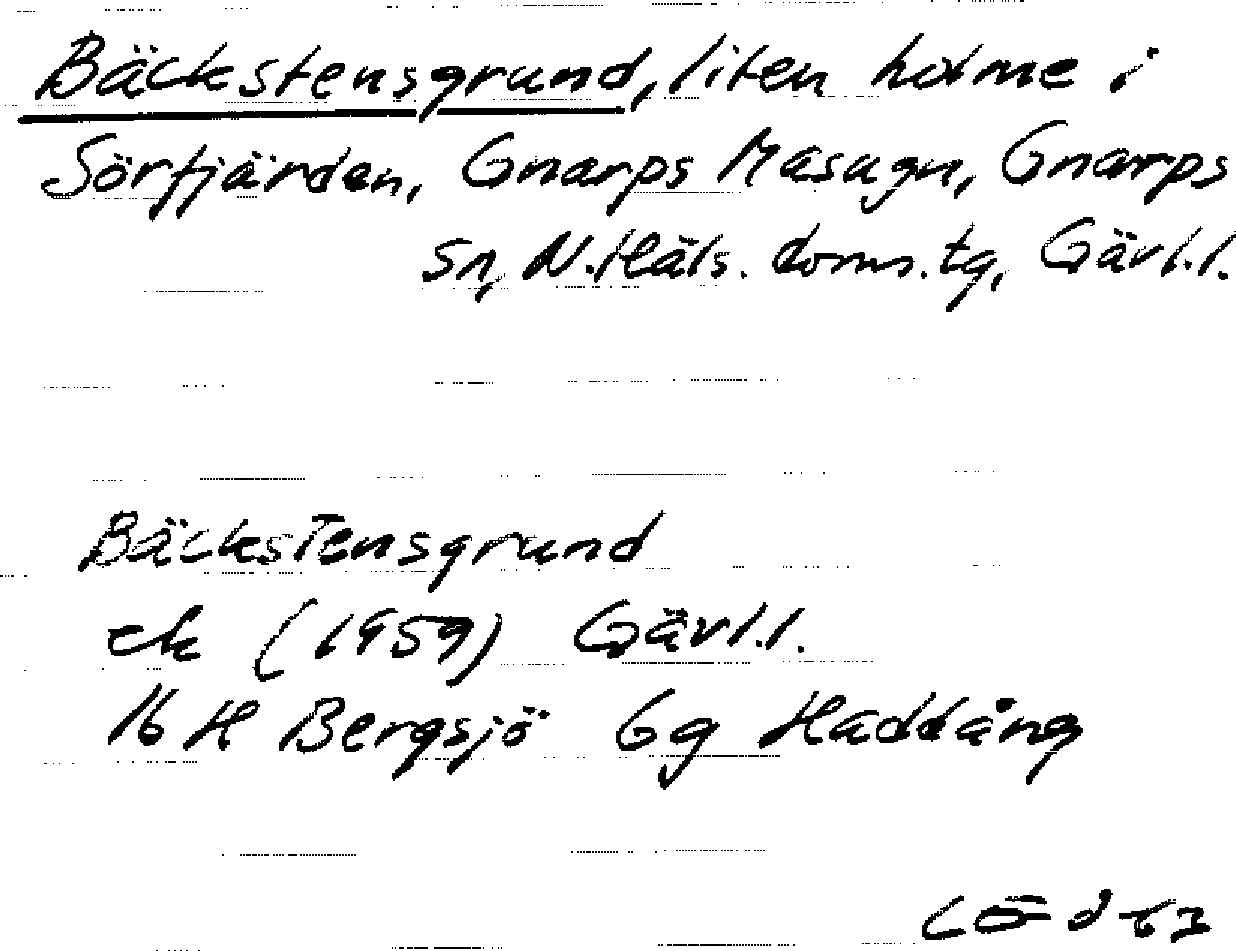 Bäckstensgrund, liten holme i
Sörfjärden, Gnarps Masugn, Gnarps
sn, N. Häls. doms. tg, Gävl. l.
Bäckstensgrund
ek (1959) Gävl. l.
16 H Bergsjö 6g Haddång